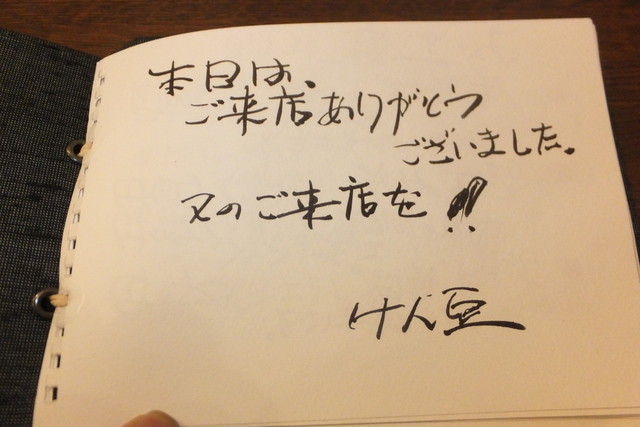 本日は、
ご来店ありがとう
ございました。
又のご来店を!!
けん豆